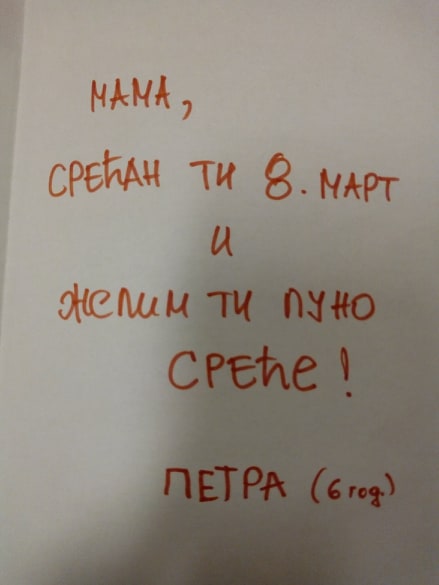 МАМА,
СРЕЋАН ТИ 8. МАРТ
И
ЖЕЛИМ ТИ ПУНО
СРЕЋЕ!
ПЕТРА (6 год.)